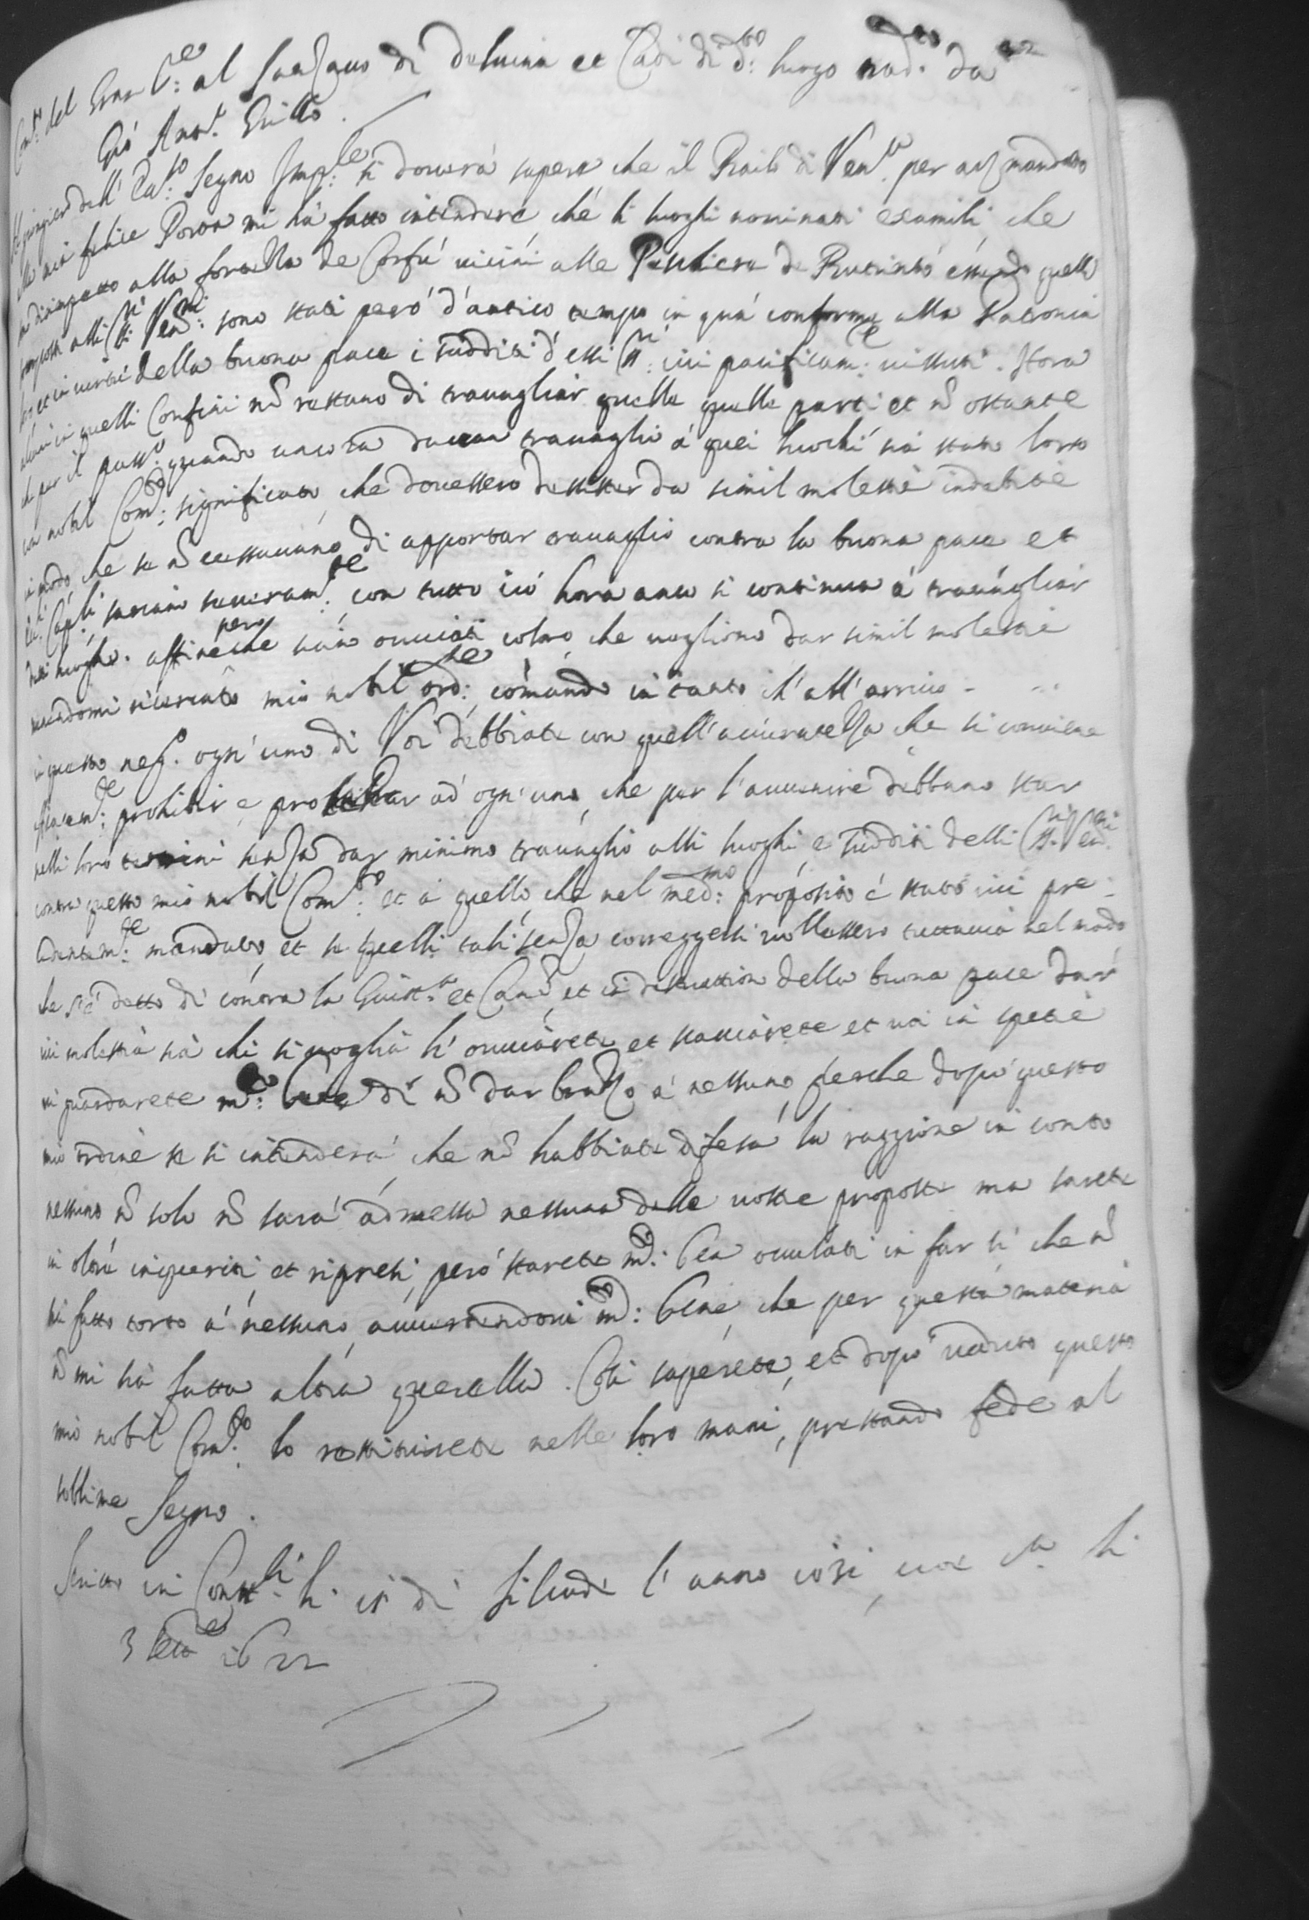 Com.to del Gran S.re al Sanzacco di Deluina et Cadi di d.to luogo trad.o da
Gio Ant.o Grillo.
dell' Ecc.so Segno Imp.le si douerà sapere che il Bailo di Ven.a per arz mandato
alla mia felice Porta mi hà fatto intendere, ché li luoghi nominati examili che
dirimpetto alla fortezza de Corfú uicini alle Peschiera de Butintró essendo quelli
alli SS.ri Ven.ni: sono stati peró d'antico tempo in quà conforme alla
et in uertú della buona pace i sudditi d'essi SS.ri iui pacificam.te uissuti. Hora
in quelli Confini nõ restano di trauagliar quelle quelle parti et nõ ostante
che per il pass.o quando ancora dauan trauaglio á quei luochi sia stato loro
con nobil Com.to significato, che douessero desister da simil molestie indebite
in modo, che se nõ cessauano di apportar trauaglio contra la buona pace et
Cap.li sariano seueram.te, con tutto ció hora anco si continua á trauagliar
detti luoghi. affine che però siano ouuiati coloro, che uogliono dar simil molestie
ricercato mio nobil ord.ne, comando in tanto ch' all' arriuo -
in questo neg.o ogn' uno di Voi debbiate con quell' accuratezza che si conuiene
prohibir e protestar ad ogn' uno, che per l' auuenire debbano star
nelli loro termini senza dar minimo trauaglio alli luoghi e sudditi delli SS.ri Ven.ni
contra questo mio nobil Com.to et á quello, che nel med.mo proposito é stato iui pre-
cedentem.te mandato, et se quelli tali senza correggersi uollessero tuttauia nel modo
che s'é detto di contra la Giust.a et Can.ne et in destruttion della buona pace dar
iui molestia sia chi si uoglia li ouuiarete et scacciarete et uoi in spetie
ui guardarete m.to bene di nõ dar brazzo á nessuno, perche dopo questo
mio ordine se si intenderá, che nõ habbiate difesa la raggione in conto
nessuno nõ solo nõ sará admessa nessuna delle uostre proposte ma sarete
in oltre inqueriti et ripresi, peró starete m.to ben oculati in far si che nõ
sii fatto torto á nessuno, auuertendoui m.to bene, che per questa materia
nõ mi sia fatta altra querella. Cosi saperete, et dopo ueduto questo
mio nobil Com.to lo restituirete nelle loro mani, prestando fede al
sublime Segno.
Scritto in Const.li li di Siluade l' anno 1031, cioé li
3 1622